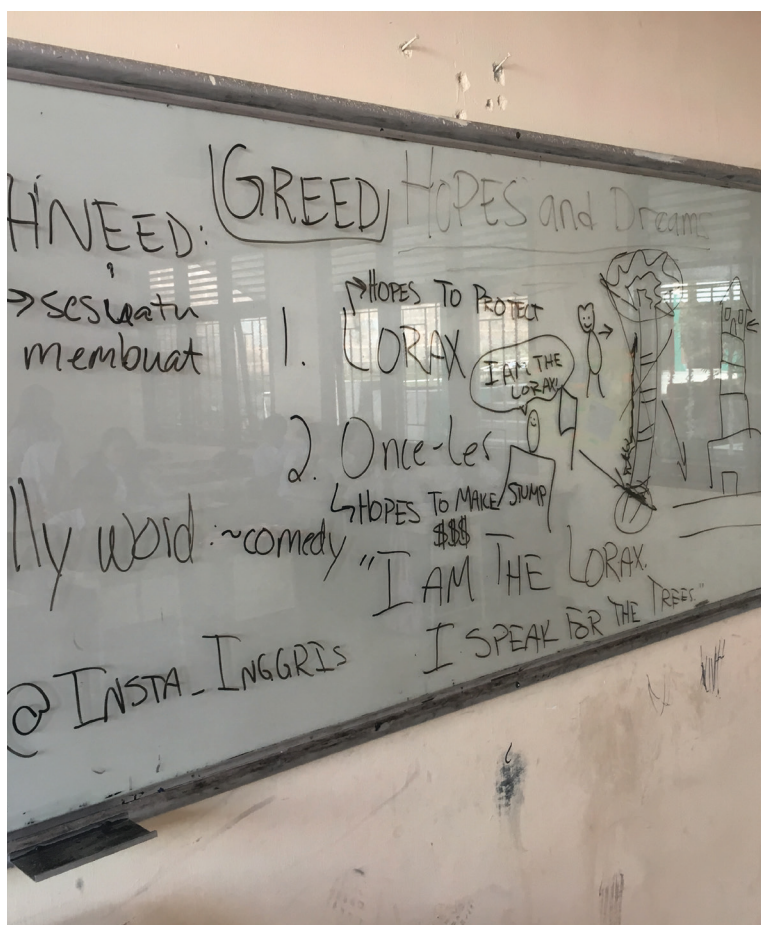 HNEED:
GREED
HOPES and Dreams
→ sesuatu
membuat
HOPES TO PROTECT
1. LORAX
I AM THE
LORAX!
2. Once-ler
HOPES TO MAKE
$$$
STUMP
lly word: ~comedy
"I AM THE LORAX.
I SPEAK FOR THE TREES."
@INSTA_INGGRIS